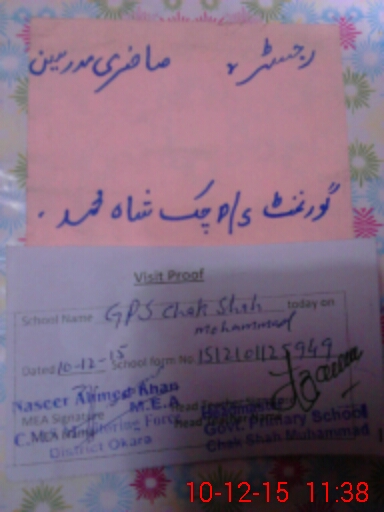 رجسٹر حاضری مدرسین
گورنمنٹ P/S چک شاہ محمد۔
Visit Proof
School Name GPS Chak Shah today on
Mohammad
Dated 10-12-15 School form No. 1512101125949
Naseer Ahmed Khan
M.E.A
MEA Signature Head Teacher
Headmaster
C.M's Monitoring Force
Govt. Primary School
District Okara
Chak Shah Muhammad
10-12-15 11:38